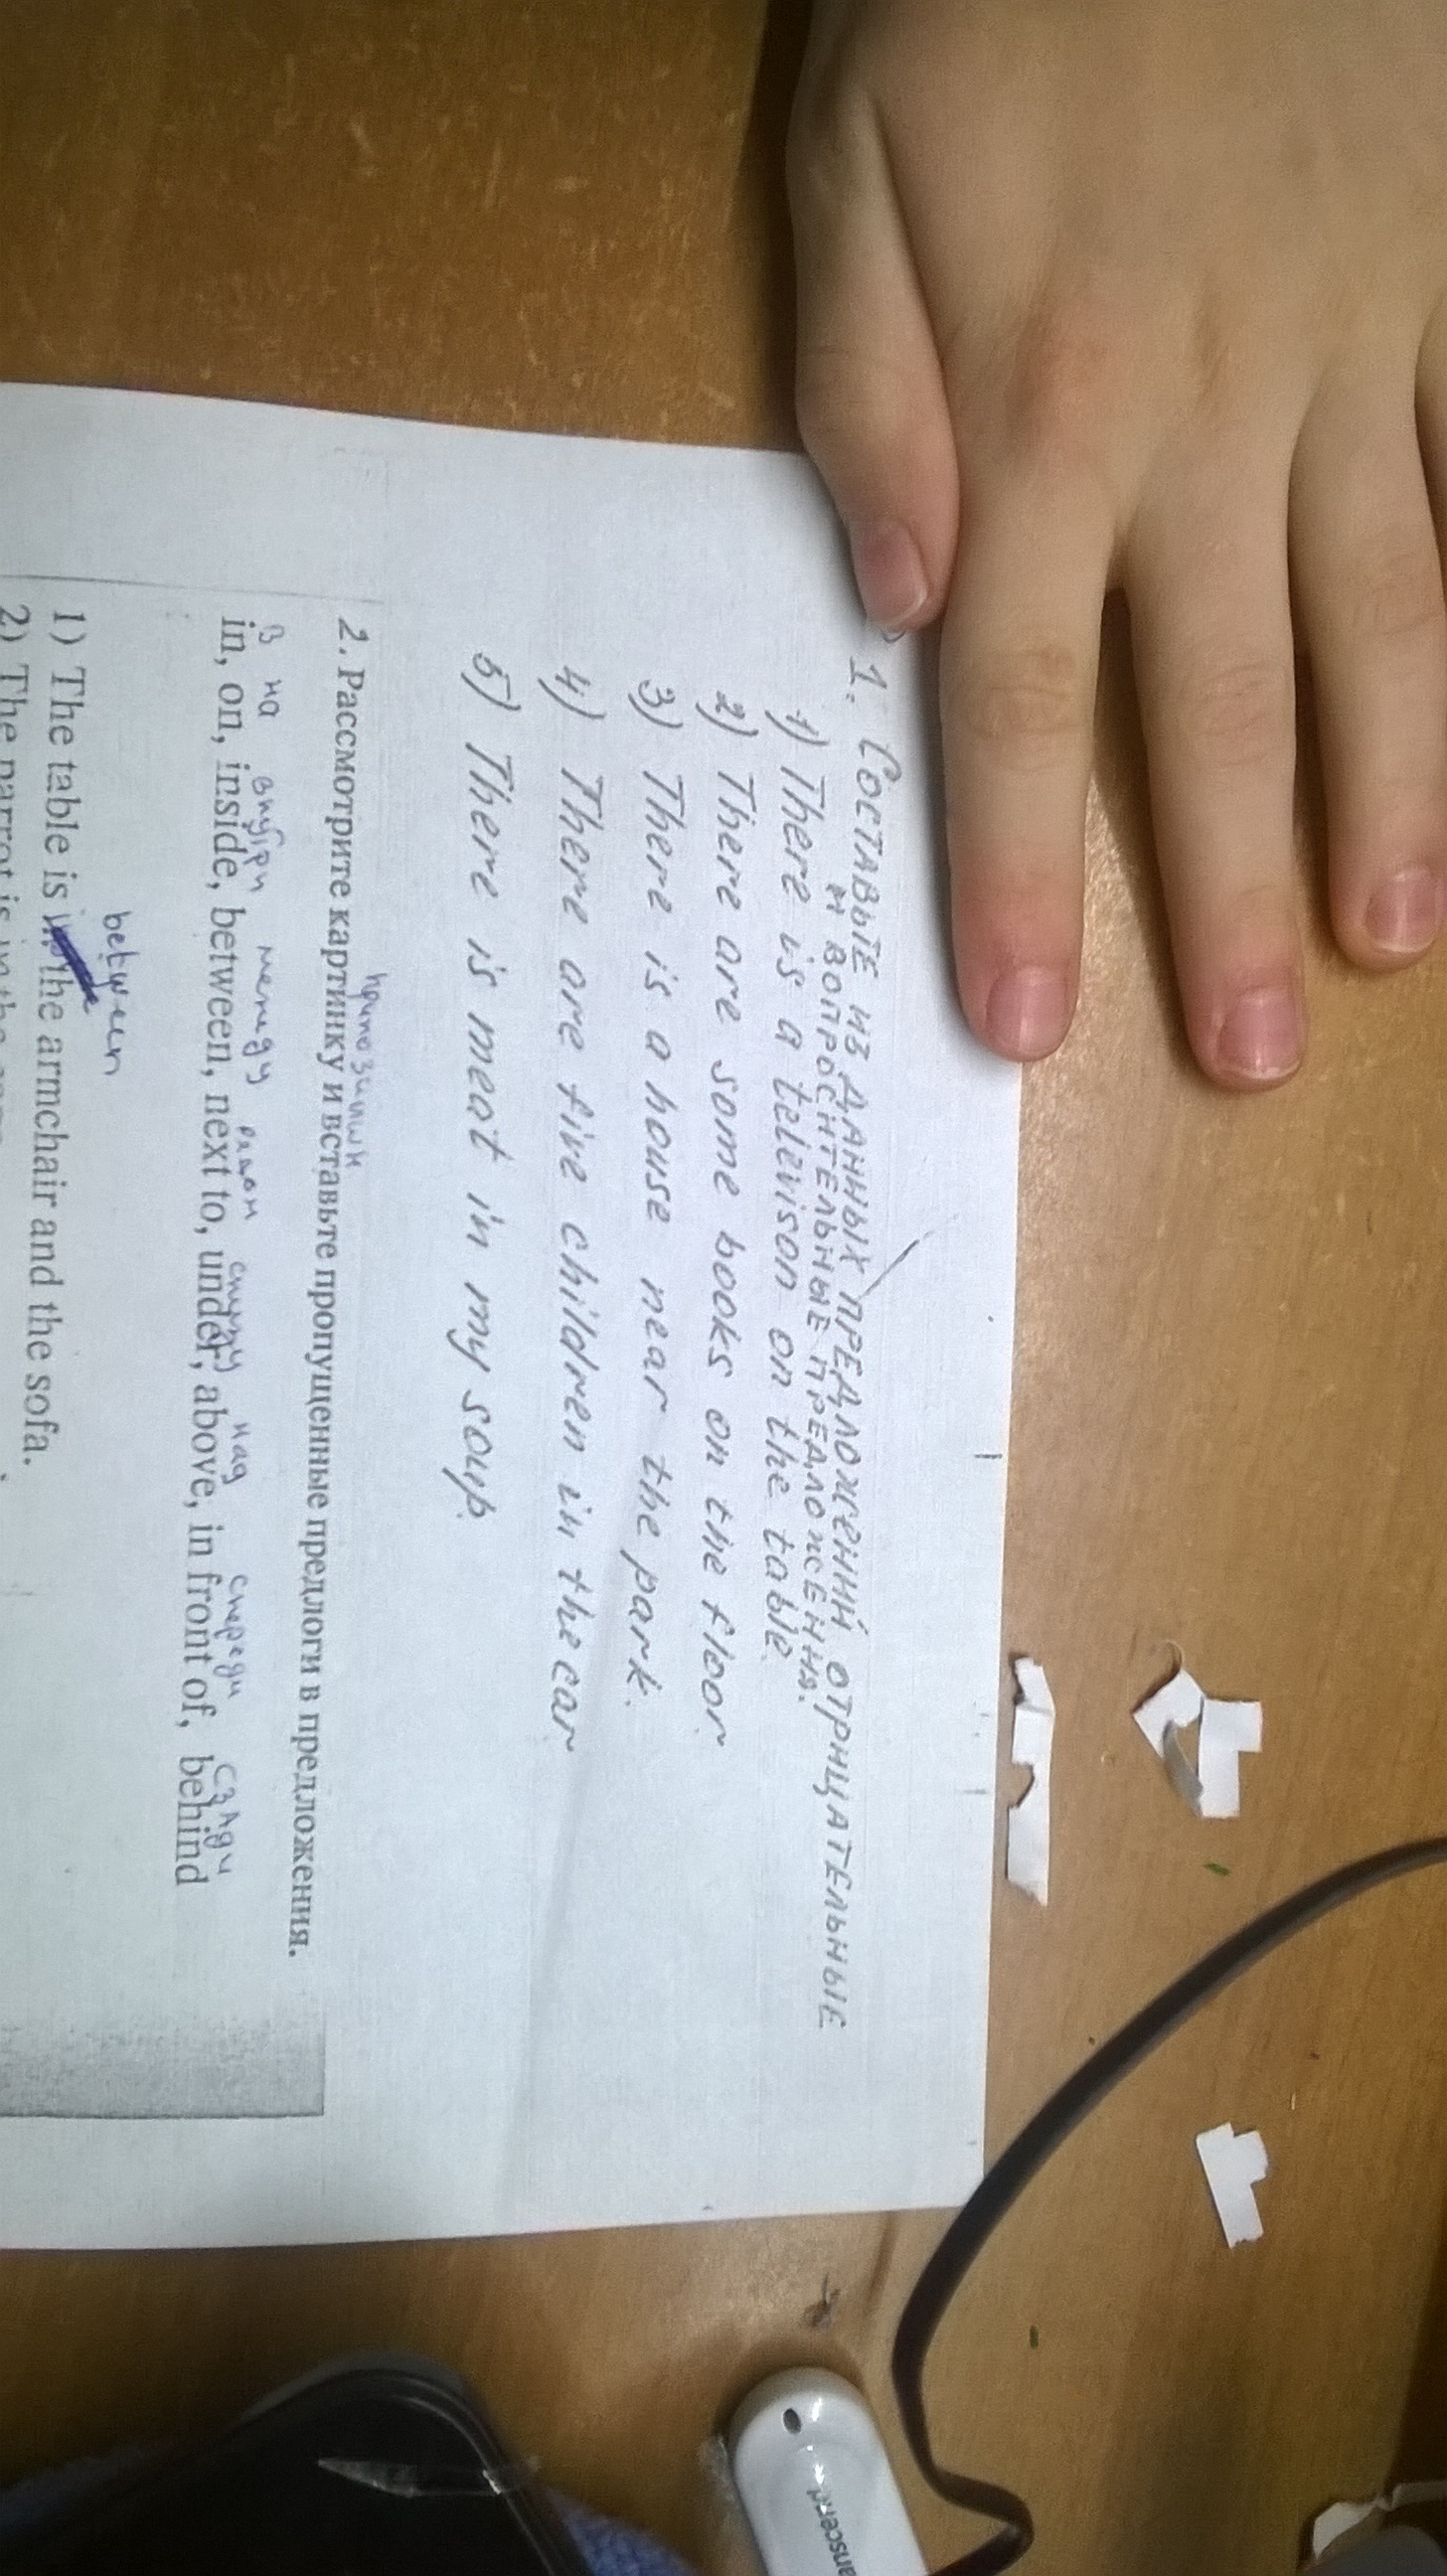 1. СОСТАВЬТЕ ИЗ ДАННЫХ ПРЕДЛОЖЕНИЙ ОТРИЦАТЕЛЬНЫЕ
И ВОПРОСИТЕЛЬНЫЕ ПРЕДЛОЖЕНИЯ.
1) There is a televison on the table.
2) There are some books on the floor.
3) There is a house near the park.
4) There are five children in the car.
5) There is meat in my soup.
2. Рассмотрите картинку и вставьте пропущенные предлоги в предложения.
в на внутри между рядом снизу над спереди сзади
in, on, inside, between, next to, under, above, in front of, behind
between
1) The table is the armchair and the sofa.
2) The parrot is in the
anscend